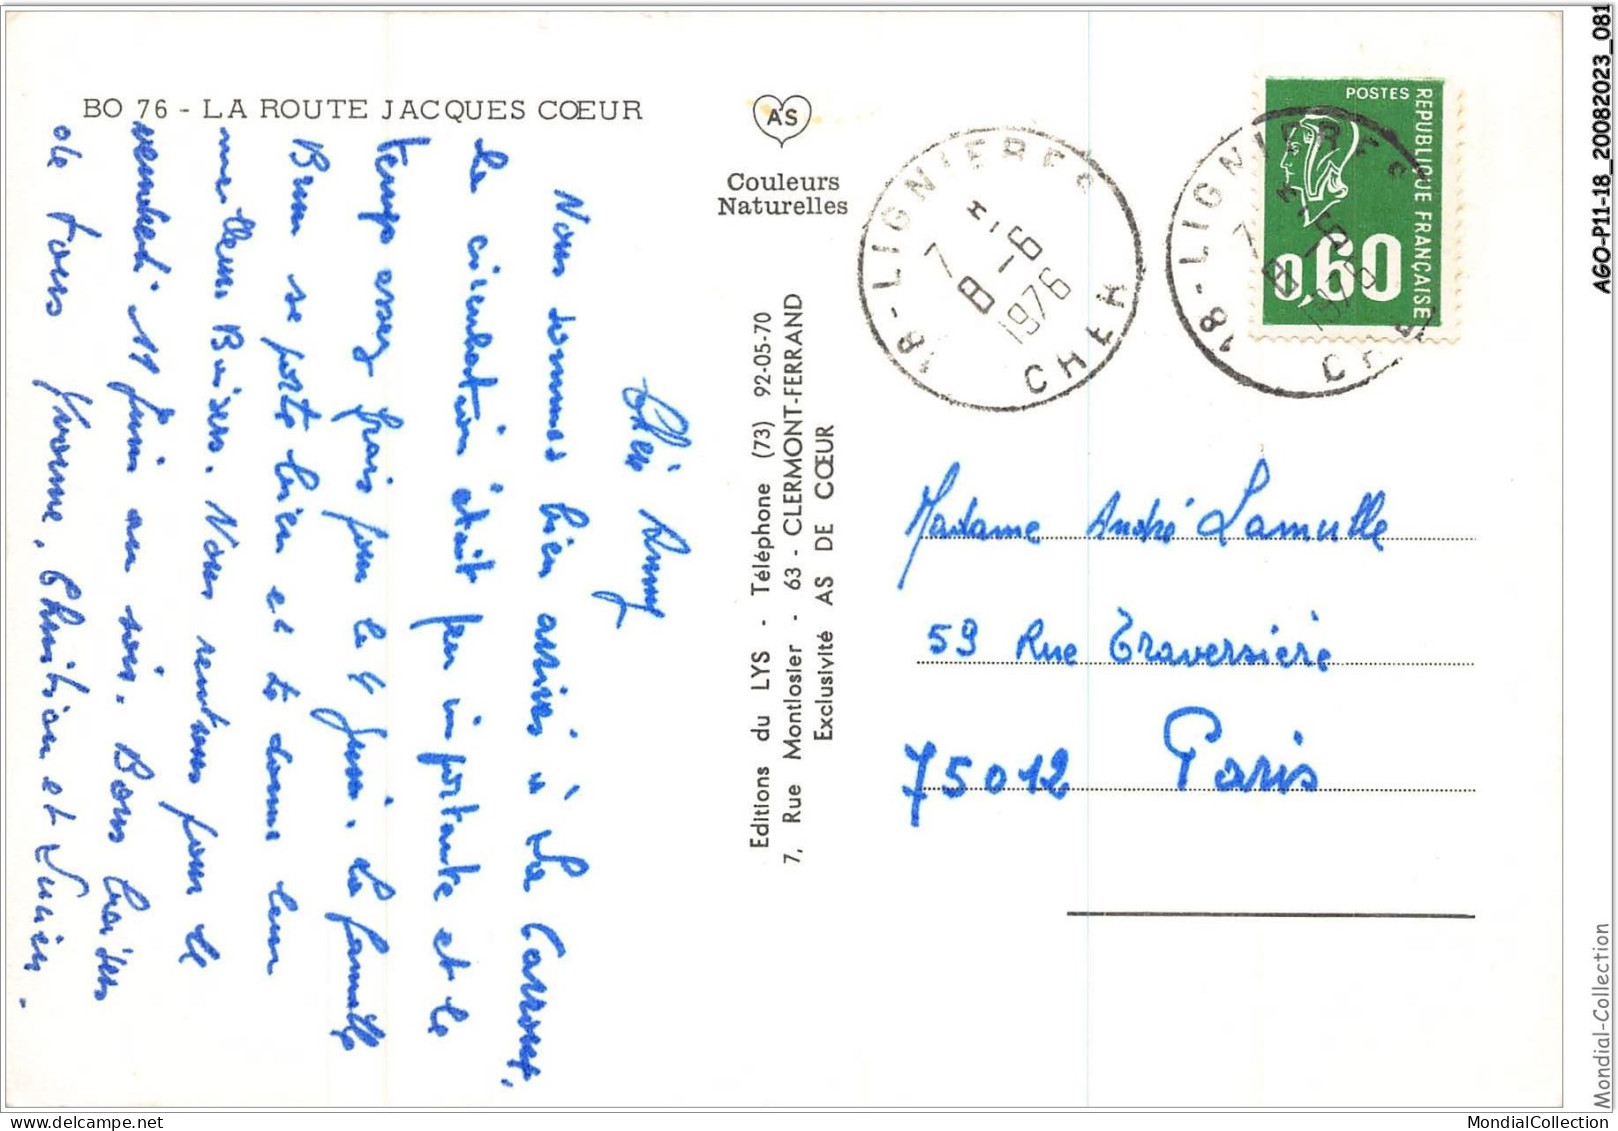 BO 76 - LA ROUTE JACQUES CŒUR
AS
Couleurs
Naturelles
Editions du LYS - Téléphone (73) 92-05-70
7, Rue Montlosier - 63 - CLERMONT-FERRAND
Exclusivité AS DE CŒUR
Chère Anny
Nous sommes bien arrivés à La
la circulation était peu importante et le
temps assez frais pour le 4 Juin. La famille
Brun se porte bien et te donne leur
meilleurs Baisers. Nous rentrons pour le
vendredi 11 Juin au soir. Bons baisers
de tous Yvonne, Christian et Lucien.
18-LIGNIERES
7 H
8-6
1976
CHER
18-LIGNIERES
7 H
8-6
1976
CHER
POSTES
REPUBLIQUE FRANÇAISE
0,60
Madame André Lamulle
59 Rue Traversière
75012 Paris
AGO-P11-18_20082023_081
Mondial-Collection
MondialCollection